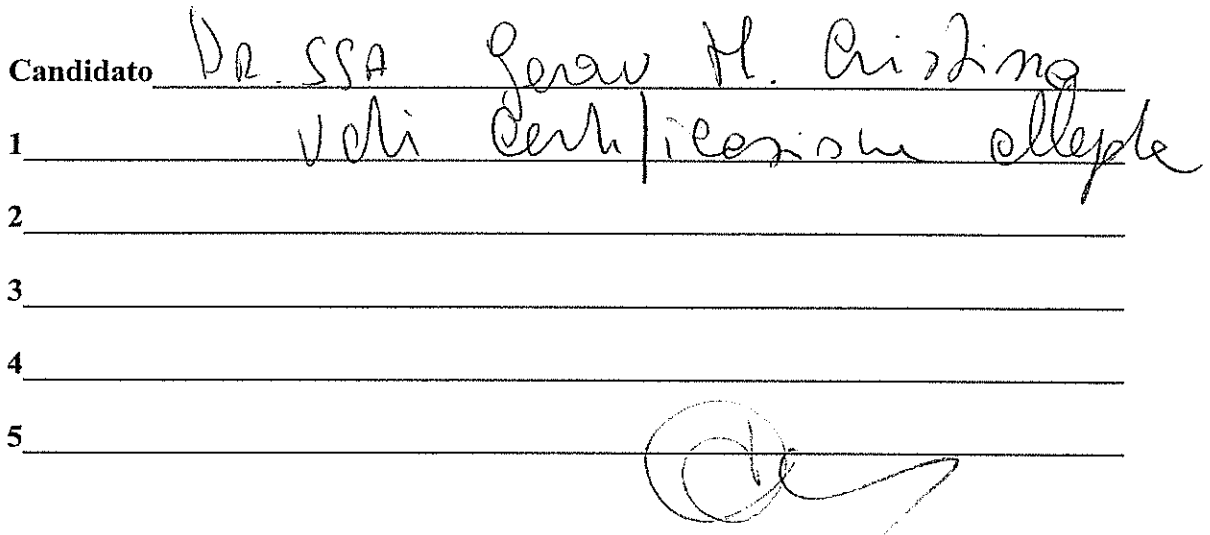 Candidato DR.SSA Gerau M. Cristina
1 Vedi certificazione allegata
2
3
4
5